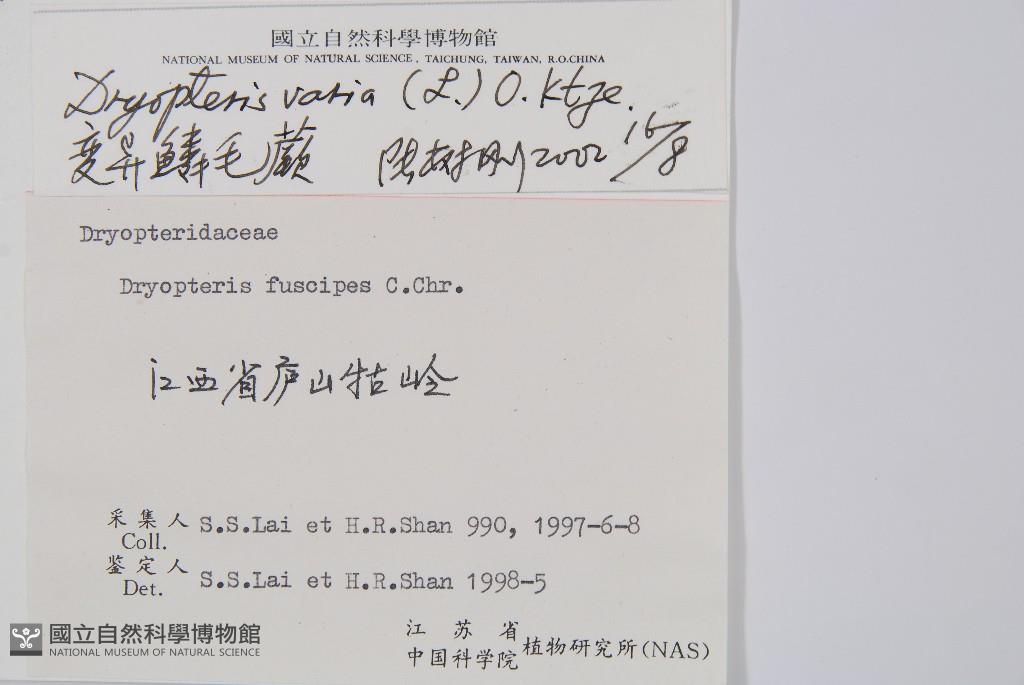 國立自然科學博物館
NATIONAL MUSEUM OF NATURAL SCIENCE, TAICHUNG, TAIWAN, R.O.CHINA
Dryopteris varia (L.) O. Ktze.
变异鱗毛蕨 张树刚 2002 16/8
Dryopteridaceae
Dryopteris fuscipes C.Chr.
江西省庐山牯岭
采集人 S.S.Lai et H.R.Shan 990, 1997-6-8
Coll.
鉴定人 S.S.Lai et H.R.Shan 1998-5
Det.
江苏省
中国科学院 植物研究所(NAS)
國立自然科學博物館
NATIONAL MUSEUM OF NATURAL SCIENCE